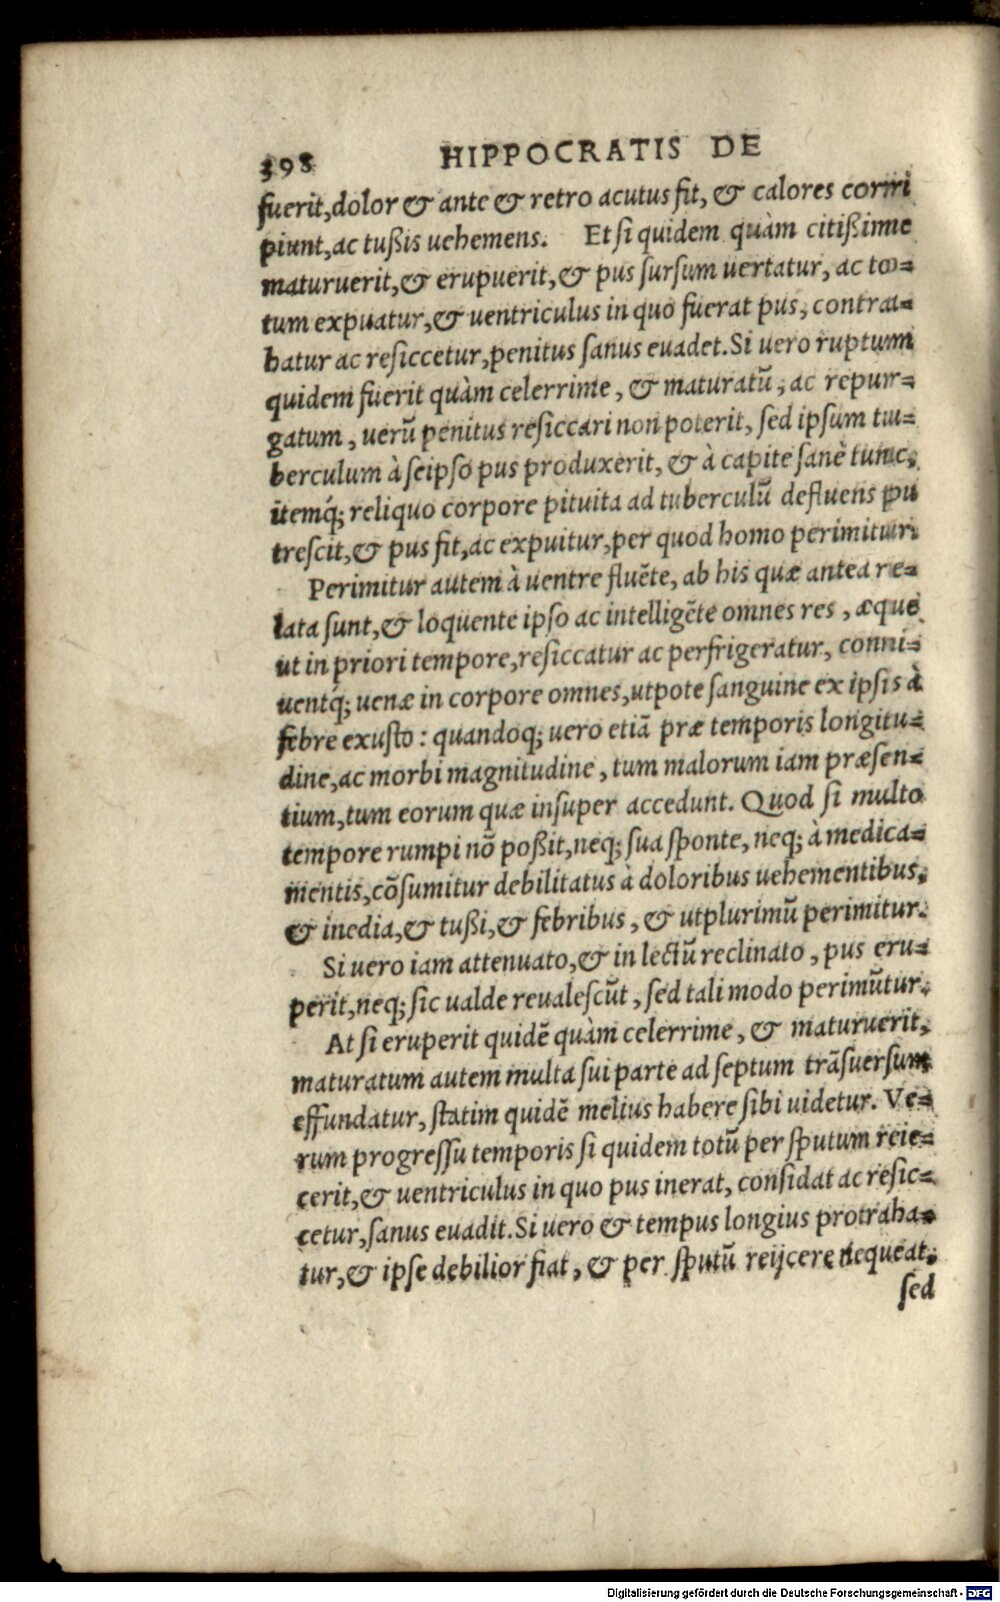 398 HIPPOCRATIS DE
fuerit,dolor & ante & retro acutus fit, & calores corri
piunt,ac tußis uehemens. Et si quidem quàm citißime
maturuerit,& eruperit,& pus sursum uertatur, ac to=
tum expuatur,& uentriculus in quo fuerat pus, contra=
hatur ac resiccetur,penitus sanus euadet. Si uero ruptum
quidem fuerit quàm celerrime, & maturatũ, ac repur=
gatum, uerũ penitus resiccari non poterit, sed ipsum tu=
berculum à seipso pus produxerit, & à capite sanè tunc,
itemq́; reliquo corpore pituita ad tuberculũ defluens pu
trescit,& pus fit,ac expuitur,per quod homo perimitur.
Perimitur autem à uentre fluẽte, ab his quæ antea re=
lata sunt,& loquente ipso ac intelligẽte omnes res, æque
ut in priori tempore,resiccatur ac perfrigeratur, conni=
uentq́; uenæ in corpore omnes,utpote sanguine ex ipsis à
febre exusto: quandoq; uero etiã præ temporis longitu=
dine,ac morbi magnitudine, tum malorum iam præsen=
tium,tum eorum quæ insuper accedunt. Quod si multo
tempore rumpi nõ poßit,neq; sua sponte, neq; à medica=
mentis,cõsumitur debilitatus à doloribus uehementibus,
& inedia,& tußi,& febribus, & utplurimũ perimitur.
Si uero iam attenuato,& in lectũ reclinato, pus eru=
perit,neq; sic ualde reualescũt, sed tali modo perimũtur.
At si eruperit quidẽ quàm celerrime, & maturuerit,
maturatum autem multa sui parte ad septum trãsuersum
effundatur, statim quidẽ melius habere sibi uidetur. Ve=
rum progressu temporis si quidem totũ per sputum reie=
cerit,& uentriculus in quo pus inerat, considat ac resic=
cetur,sanus euadit. Si uero & tempus longius protraha=
tur,& ipse debilior fiat, & per sputũ reijcere nequeat,
sed
Digitalisierung gefördert durch die Deutsche Forschungsgemeinschaft - DFG